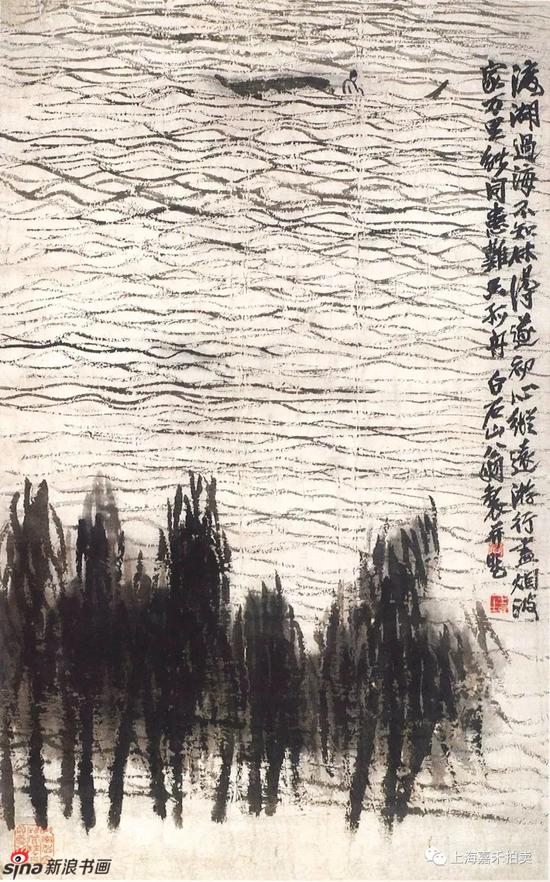 渡湖過海不知休得遂初心縱遠游行盡烟波
家万里能同患難只孤舟 白石山翁製并題
sina 新浪书画
上海嘉禾拍卖